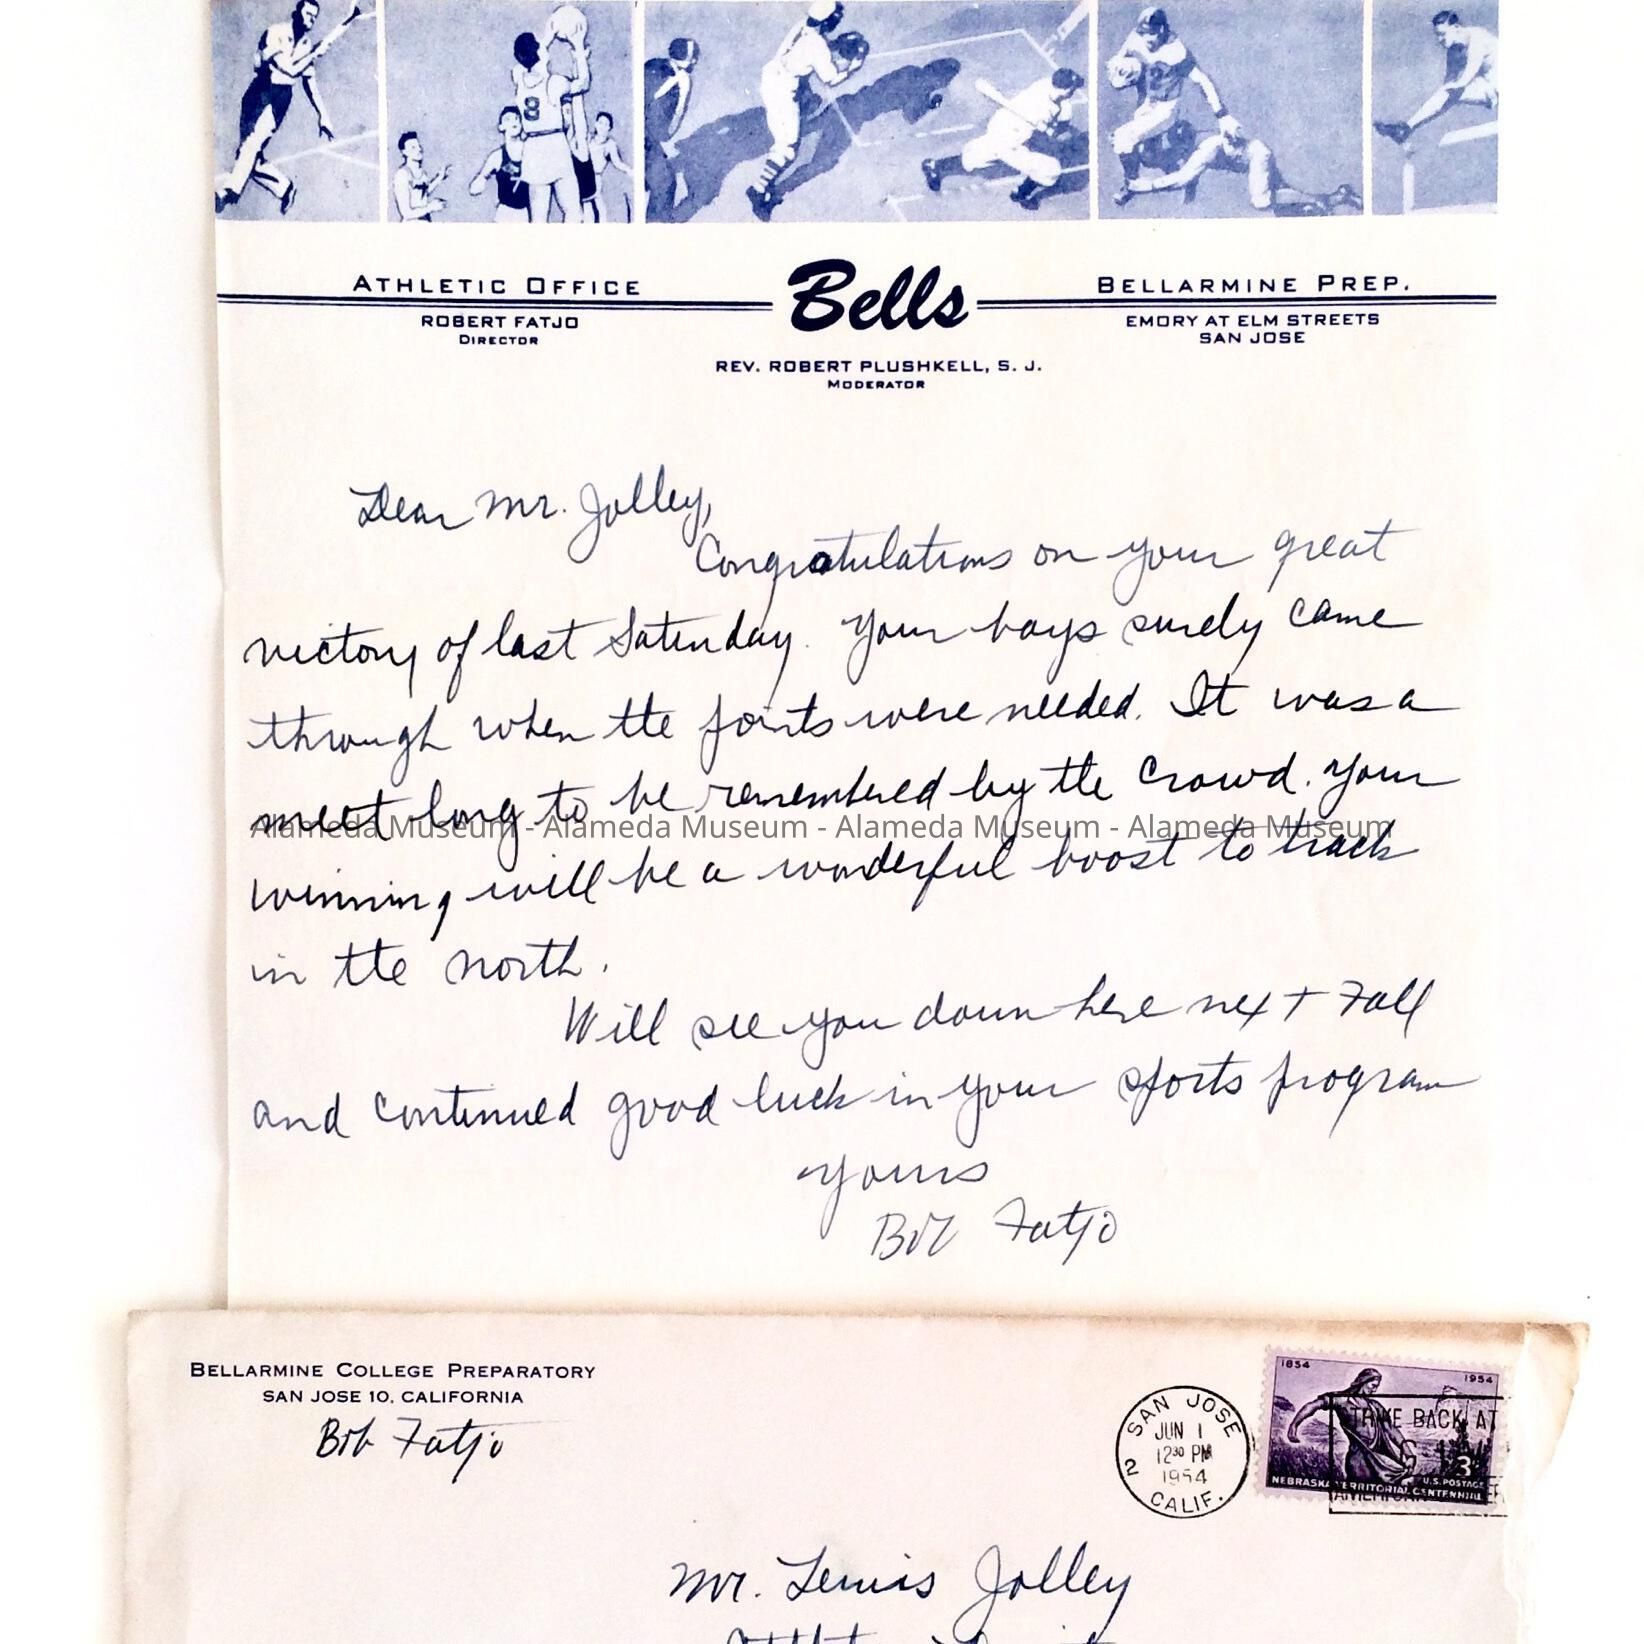 8
ATHLETIC OFFICE
ROBERT FATJO
DIRECTOR
Bells
REV. ROBERT PLUSHKELL, S. J.
MODERATOR
BELLARMINE PREP.
EMORY AT ELM STREETS
SAN JOSE
Dear Mr. Jolley,
Congratulations on your great
victory of last Saturday. Your boys surely came
through when the points were needed. It was a
meet long to be remembered by the crowd. Your
Alameda Museum - Alameda Museum - Alameda Museum - Alameda Museum
winning will be a wonderful boost to track
in the north.
Will see you down here next Fall
and continued good luck in your sports program
Yours
Bob Fatjo
BELLARMINE COLLEGE PREPARATORY
SAN JOSE 10, CALIFORNIA
Bob Fatjo
SAN JOSE
JUN 1
12 30 PM
1954
2
CALIF.
1854
1954
STRIKE BACK AT
3¢
U.S. POSTAGE
NEBRASKA TERRITORIAL CENTENNIAL
Mr. Lewis Jolley